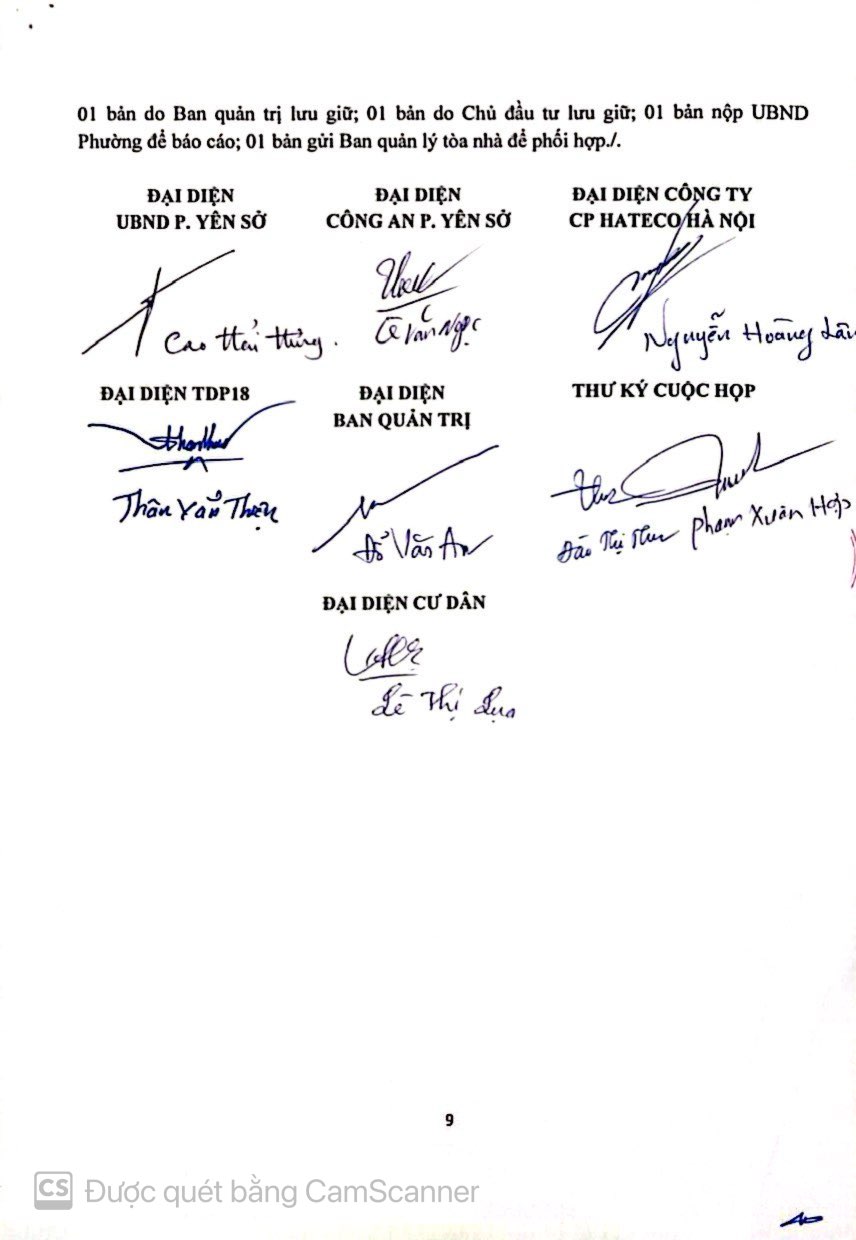 01 bản do Ban quản trị lưu giữ; 01 bản do Chủ đầu tư lưu giữ; 01 bản nộp UBND
Phường để báo cáo; 01 bản gửi Ban quản lý tòa nhà để phối hợp./.
ĐẠI DIỆN
UBND P. YÊN SỞ
Cao Hải Hưng.
ĐẠI DIỆN
CÔNG AN P. YÊN SỞ
Lê Văn Ngọc
ĐẠI DIỆN CÔNG TY
CP HATECO HÀ NỘI
Nguyễn Hoàng Lân
ĐẠI DIỆN TDP18
Thân Văn Thiện
ĐẠI DIỆN
BAN QUẢN TRỊ
Đỗ Văn An
THƯ KÝ CUỘC HỌP
Đào Thị Thu Phạm Xuân Hợp
ĐẠI DIỆN CƯ DÂN
Lê Thị Lụa
9
CS Được quét bằng CamScanner